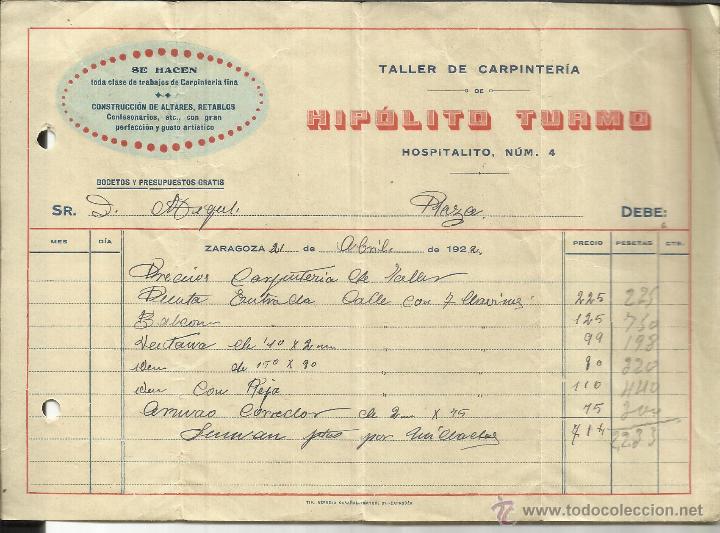 SE HACEN
toda clase de trabajos de Carpintería fina
CONSTRUCCIÓN DE ALTARES, RETABLOS
Confesonarios, etc., con gran
perfección y gusto artístico
BOCETOS Y PRESUPUESTOS GRATIS
TALLER DE CARPINTERÍA
DE
HIPÓLITO TURMO
HOSPITALITO, NÚM. 4
SR. D. Miguel Plaza DEBE:
MES DÍA ZARAGOZA 21 de Abril de 1922 PRECIO PESETAS CTS.
Precios Carpinteria de Taller
Puerta Entrada Calle con 225 225
Balcon 125 750
Ventana de 1'40 x 2 99 198
iden de 150 x 90 80 320
iden Con Reja 110 440
Corredor de 2 x 75 75 300
Suman ptas por 714 2233
todocoleccion
www.todocoleccion.net